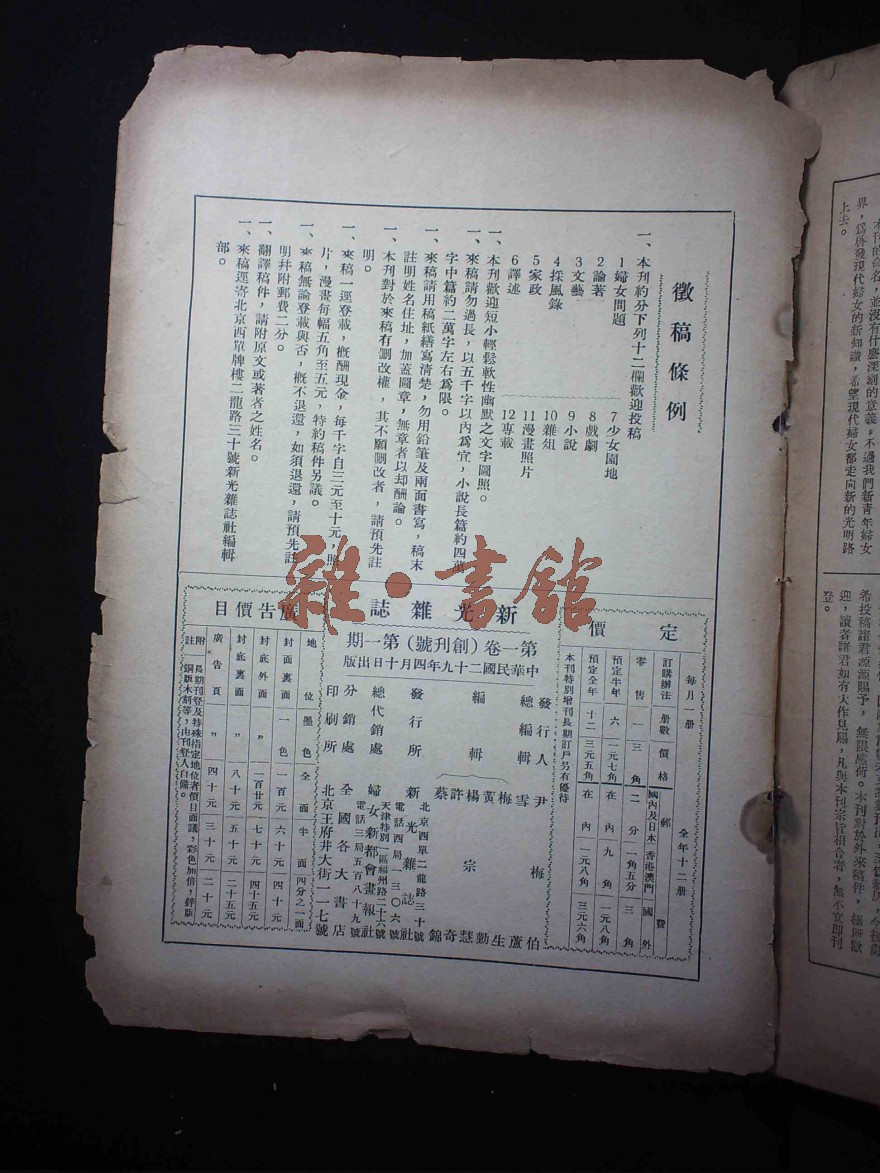 徵稿條例
一、本刊約分下列十二欄歡迎投稿
1婦女問題
2論著
3文藝
4採風錄
5家政
6譯述
7少女園地
8戲劇
9小說
10雜俎
11漫畫照片
12專載
一、本刊歡迎短小輕鬆軟性幽默之文字圖照。
一、來稿請勿過長,以五千字以內爲宜,小說長篇約四萬
字中篇約二萬字左右爲限。
一、來稿請用稿紙繕寫清楚,勿用鉛筆及兩面書寫,稿末
註明姓名住址,加蓋圖章,無章者以却酬論。
一、本刊對於來稿有删改權,其不願删改者,請預先註
明。
一、來稿一逕登載,槪酬現金,每千字自三元至十元,照
片,漫畫每幅五角至五元,特約稿件另議。
一、來稿無論登載與否,槪不退還,如須退還,請預先註
明幷附郵費二分。
一、翻譯稿件,請附原文或著者之姓名。
一、來稿逕寄北京西單牌樓二龍路三十號新光雜誌社編輯
部。
定價
每月一册 全年十二册
訂購辦法 册數 價格 郵費
國內及日本 香港澳門 國外
零售 一 三角 二分 一角五分 三角
預定半年 六 一元七角 在內 九角 一元八角
預定全年 十二 三元五角 在內 一元八角 三元六角
本刊特別增刊長期訂戶另有優待
新光雜誌
第一卷(創刊號)第一期
中華民國二十九年四月十日出版
發行人 尹梅伯
總編輯 雪
編輯 梅 黃 楊 許 蔡
宗
蘆 生 勤 慧 奇 錦
發行所 新光雜誌社
北京西單二龍路三十號
電話西局一三〇六號
總代銷處 婦女新都會畫報社
天津特別一區福州路二十六號
電話三局五百八十九號
分銷處 全國各大書店
印刷所 北京王府井大街一一七號
廣告價目
地位 墨色 全面 半面 四分之一面
封面裏面 一色 一百元 六十元 四十元
封底外面 〃 一百廿元 七十元 四十五元
封底裏面 〃 八十元 五十元 二十五元
廣告頁 〃 四十元 三十元 二十元
附註 長期刊登及特殊指定地位者價目面議,彩色加倍,鋅版
銅版木刻等,由刊登人自備。
雜·書館
本刊的命名,並沒有什麽深刻的意義,不過我們新青年婦女
界,爲啓發現代婦女的新知識,希望現代婦女都走向新的光明路
上去。
希投稿諸君源源賜予,無限感荷。本刊對於外來稿件,極所歡
迎,讀者諸君如有大作見賜,凡與本刊宗旨相合者,無不立即刊
登。